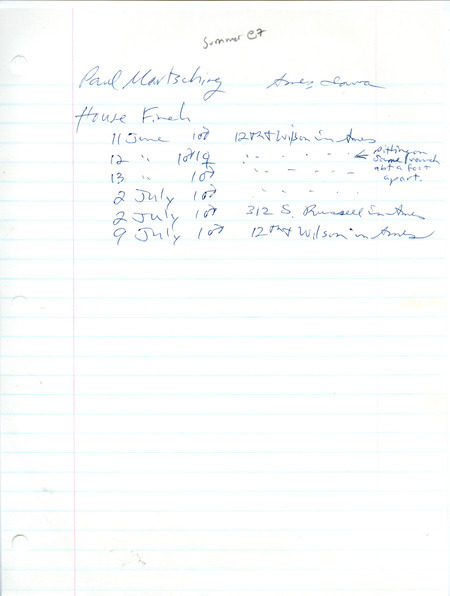 Summer 87
Paul Martsching Ames Iowa
House Finch
11 June 1♂ 12th & Wilson in Ames
12 " 1♂1♀ " - " - " - " ← sitting on same branch abt a foot apart.
13 " 1♂ " - " - " - "
2 July 1♂ " - " - " - "
2 July 1♂ 312 S. Russell in Ames
9 July 1♂ 12th & Wilson in Ames